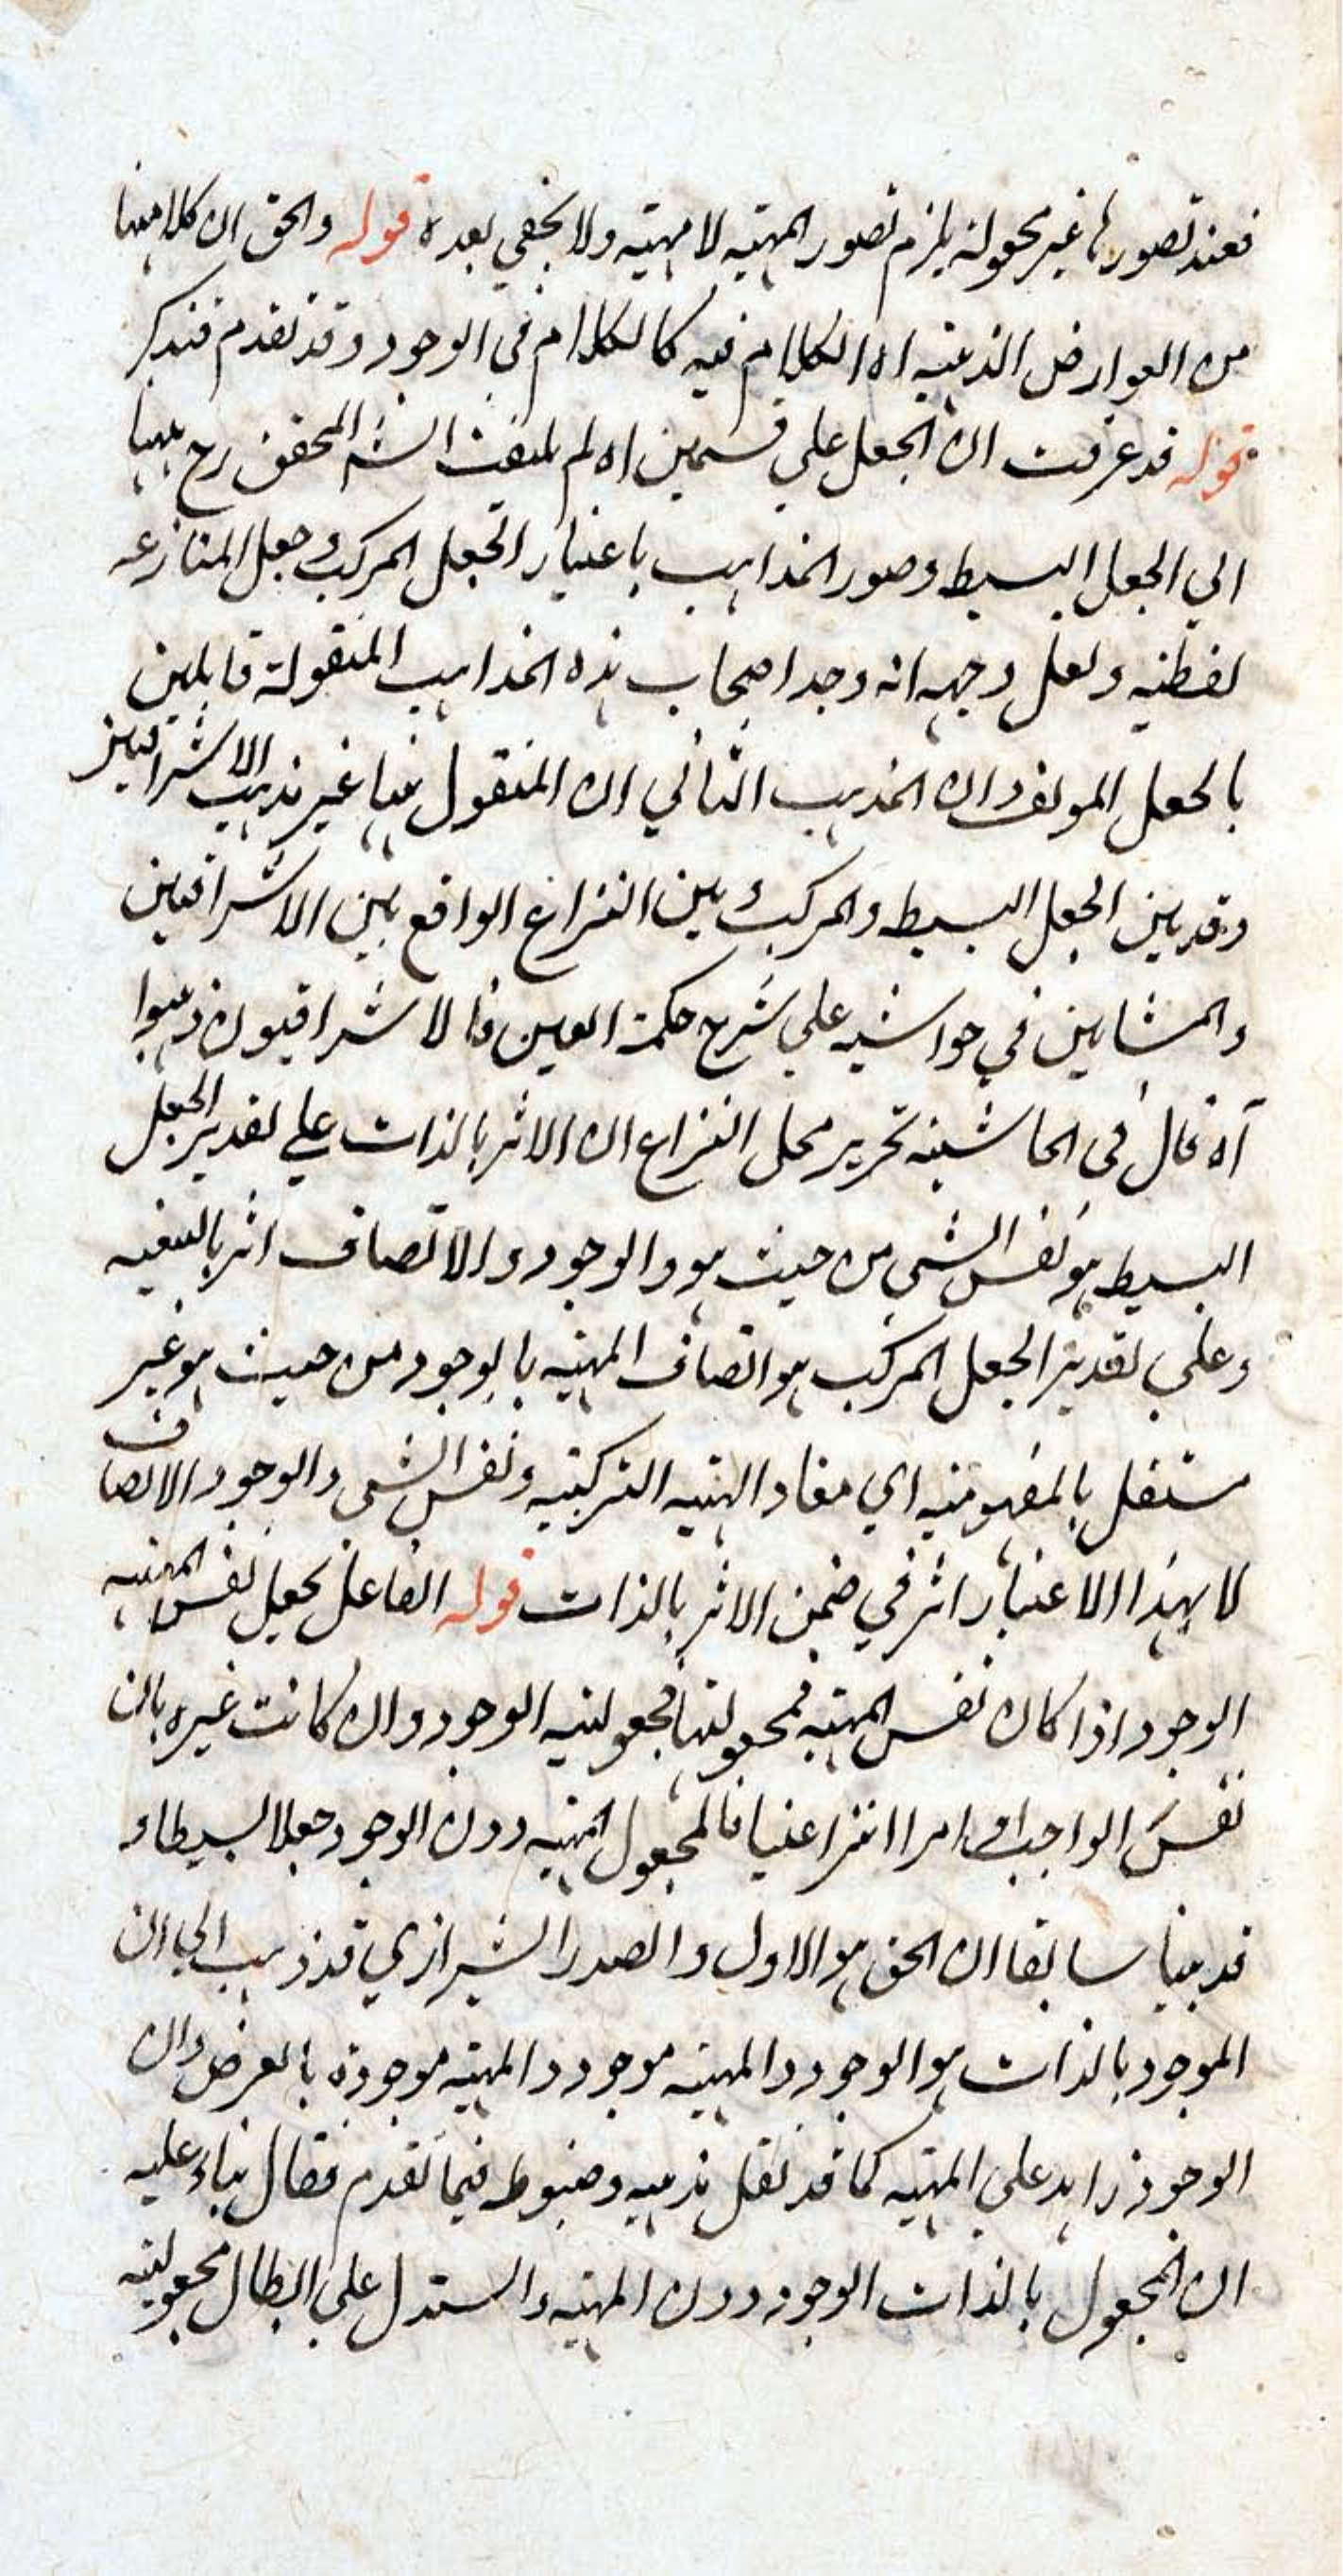 فعند تصورها غير مجعولة يلزم تصور المهيه لا مهيته ولا يخفي بعده قوله والحق ان كلا منهما
من العوارض الذهنيه اه الكلام فيه كالكلام في الوجود وقد تقدم فتذكر
قوله قد عرفت ان الجعل علي قسمين اه لم يلتفت الشه المحقق رح ههنا
الي الجعل البسيط وصور المذاهب باعتبار الجعل المركب وجعل المنازعه
لفظيه ولعل وجهه انه وجد اصحاب هذه المذاهب المنقولة قايلين
بالجعل المولف وان المذهب الثاني ان المنقول ههنا غير مذهب الاشراقيين
وقد بين الجعل البسيط والمركب بين النزاع الواقع بين الاشراقيين
والمشايين في حواشيه علي شرح حكمة العين فالاشراقيون ذهبوا
آه قال في الحاشية تحرير محل النزاع ان الاثر بالذات علي تقدير الجعل
البسيط هو نفس الشي من حيث هو والوجود والاتصاف اثر بالتبعيه
وعلي تقدير الجعل المركب هو اتصاف المهيه بالوجود من حيث هو غير
مستقل بالمفهوميه اي مفاد الهيه التركيبيه ونفس الشي والوجود والاتصاف
لا بهذا الاعتبار اثر في ضمن الاثر بالذات قوله الفاعل يجعل نفس المهيه
الوجود اذا كان نفس المهيه فمجعوليتها مجعولية الوجود وان كانت غيره بان
نفس الواجب او امرا انتزاعيا فالمجعول المهيه دون الوجود جعلا بسيطا و
قد بينا سابقا ان الحق هو الاول والصدر الشيرازي قد ذهب الي ان
الموجود بالذات هو الوجود والمهيه موجود والمهيه موجودة بالعرض وان
الوجود زايد علي المهيه كما قد نقل مذهبه ومضبوط فيما تقدم فقال بناء عليه
ان المجعول بالذات الوجود دون المهيه واستدل علي ابطال مجعولية